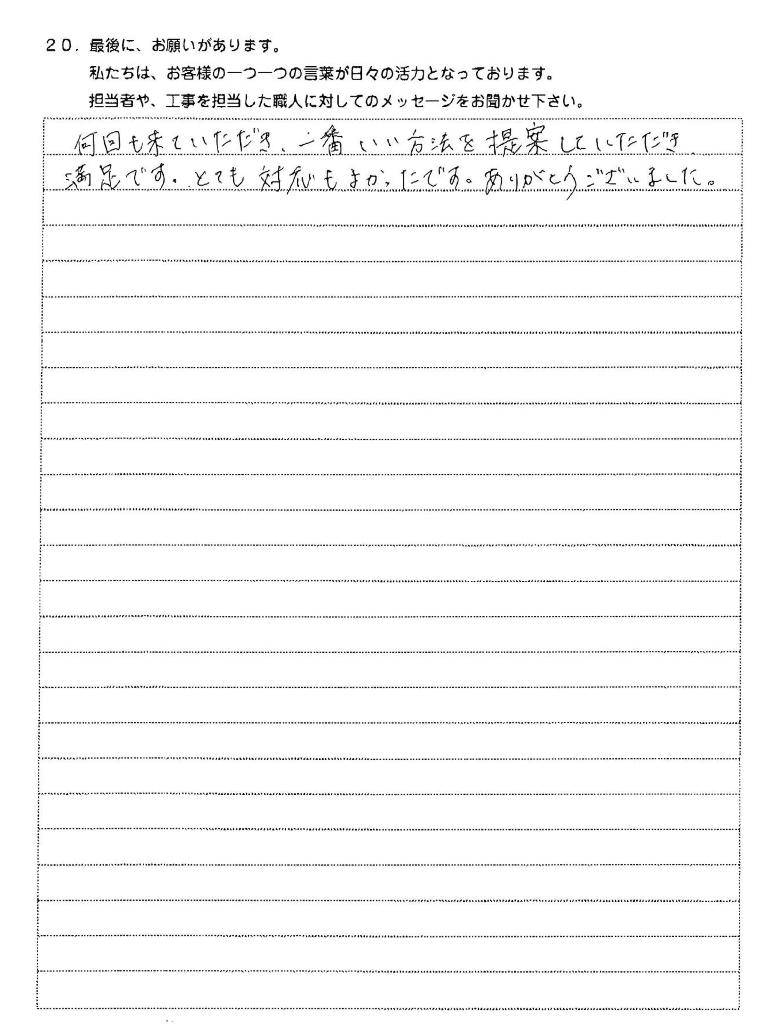 20. 最後に、お願いがあります。
私たちは、お客様の一つ一つの言葉が日々の活力となっております。
担当者や、工事を担当した職人に対してのメッセージをお聞かせ下さい。
何回も来ていただき、一番いい方法を提案していただき
満足です。とても対応もよかったです。ありがとうございました。